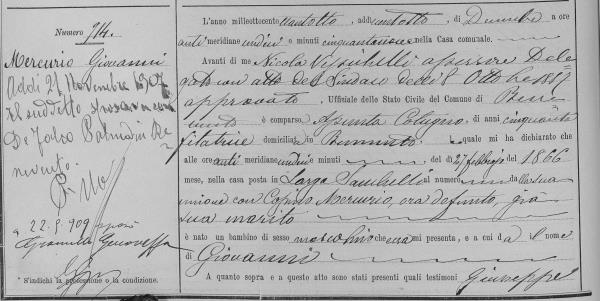 Numero 914.
Mercurio Giovanni
Addì 21 Novembre 1907
il suddetto sposava con
De Palma in Be
nevento.
22.8.909 sposò
Genoveffa
* S'indichi la professione o la condizione.
L'anno milleottocento ventotto, addì ventotto, di Dicembre a ore
anti meridiane undici e minuti cinquantanove, nella Casa comunale.
Avanti di me Nicola Vessichelli assessore Dele
gato con atto del Sindaco dell'8 Ottobre 1887
approvato. Uffiziale dello Stato Civile del Comune di Bene
vento è comparsa Assunta Cologno, di anni cinquanta
levatrice domiciliata in Benevento, quale mi ha dichiarato che
alle ore anti meridiane undici e minuti del di 27 febbrajo del 1866
mese, nella casa posta in Largo al numero da lla sua
unione con Cosimo Mercurio, ora defunto, già
suo marito
è nato un bambino di sesso mascolino che era mi presenta, e a cui dà il nome
di Giovanni
A quanto sopra e a questo atto sono stati presenti quali testimoni Giuseppe